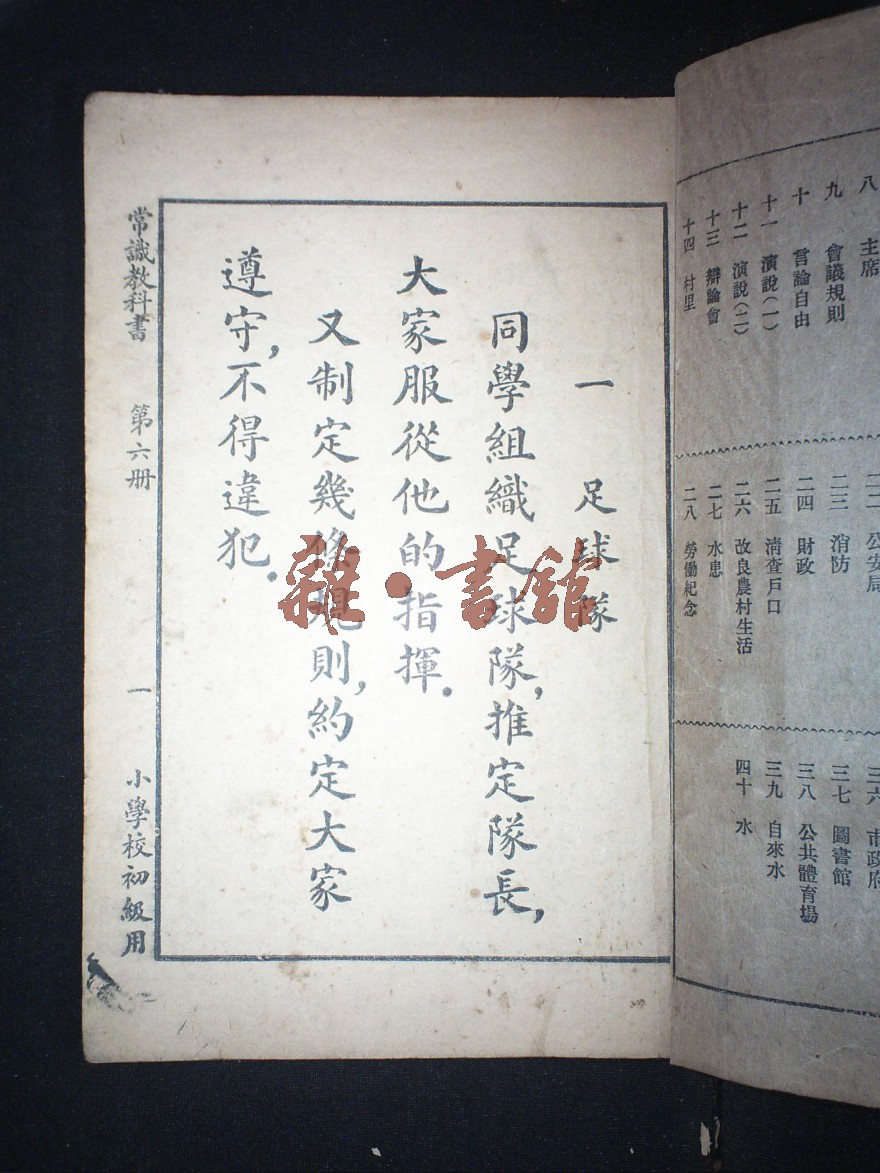 八 主席
九 會議規則
十 言論自由
十一 演說(一)
十二 演說(二)
十三 辯論會
十四 村里
二二 公安局
二三 消防
二四 財政
二五 清查戶口
二六 改良農村生活
二七 水患
二八 勞働紀念
三六 市政府
三七 圖書館
三八 公共體育場
三九 自來水
四十 水
一 足球隊
同學組織足球隊,推定隊長,
大家服從他的指揮.
又制定幾條規則,約定大家
遵守,不得違犯.
常識教科書 第六册 一 小學校初級用
雜·書館